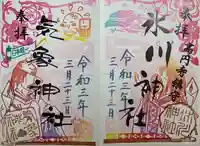 奉拝
氷川神社
令和三年
三月二十三日
奉拝
気象神社
令和三年
三月二十三日